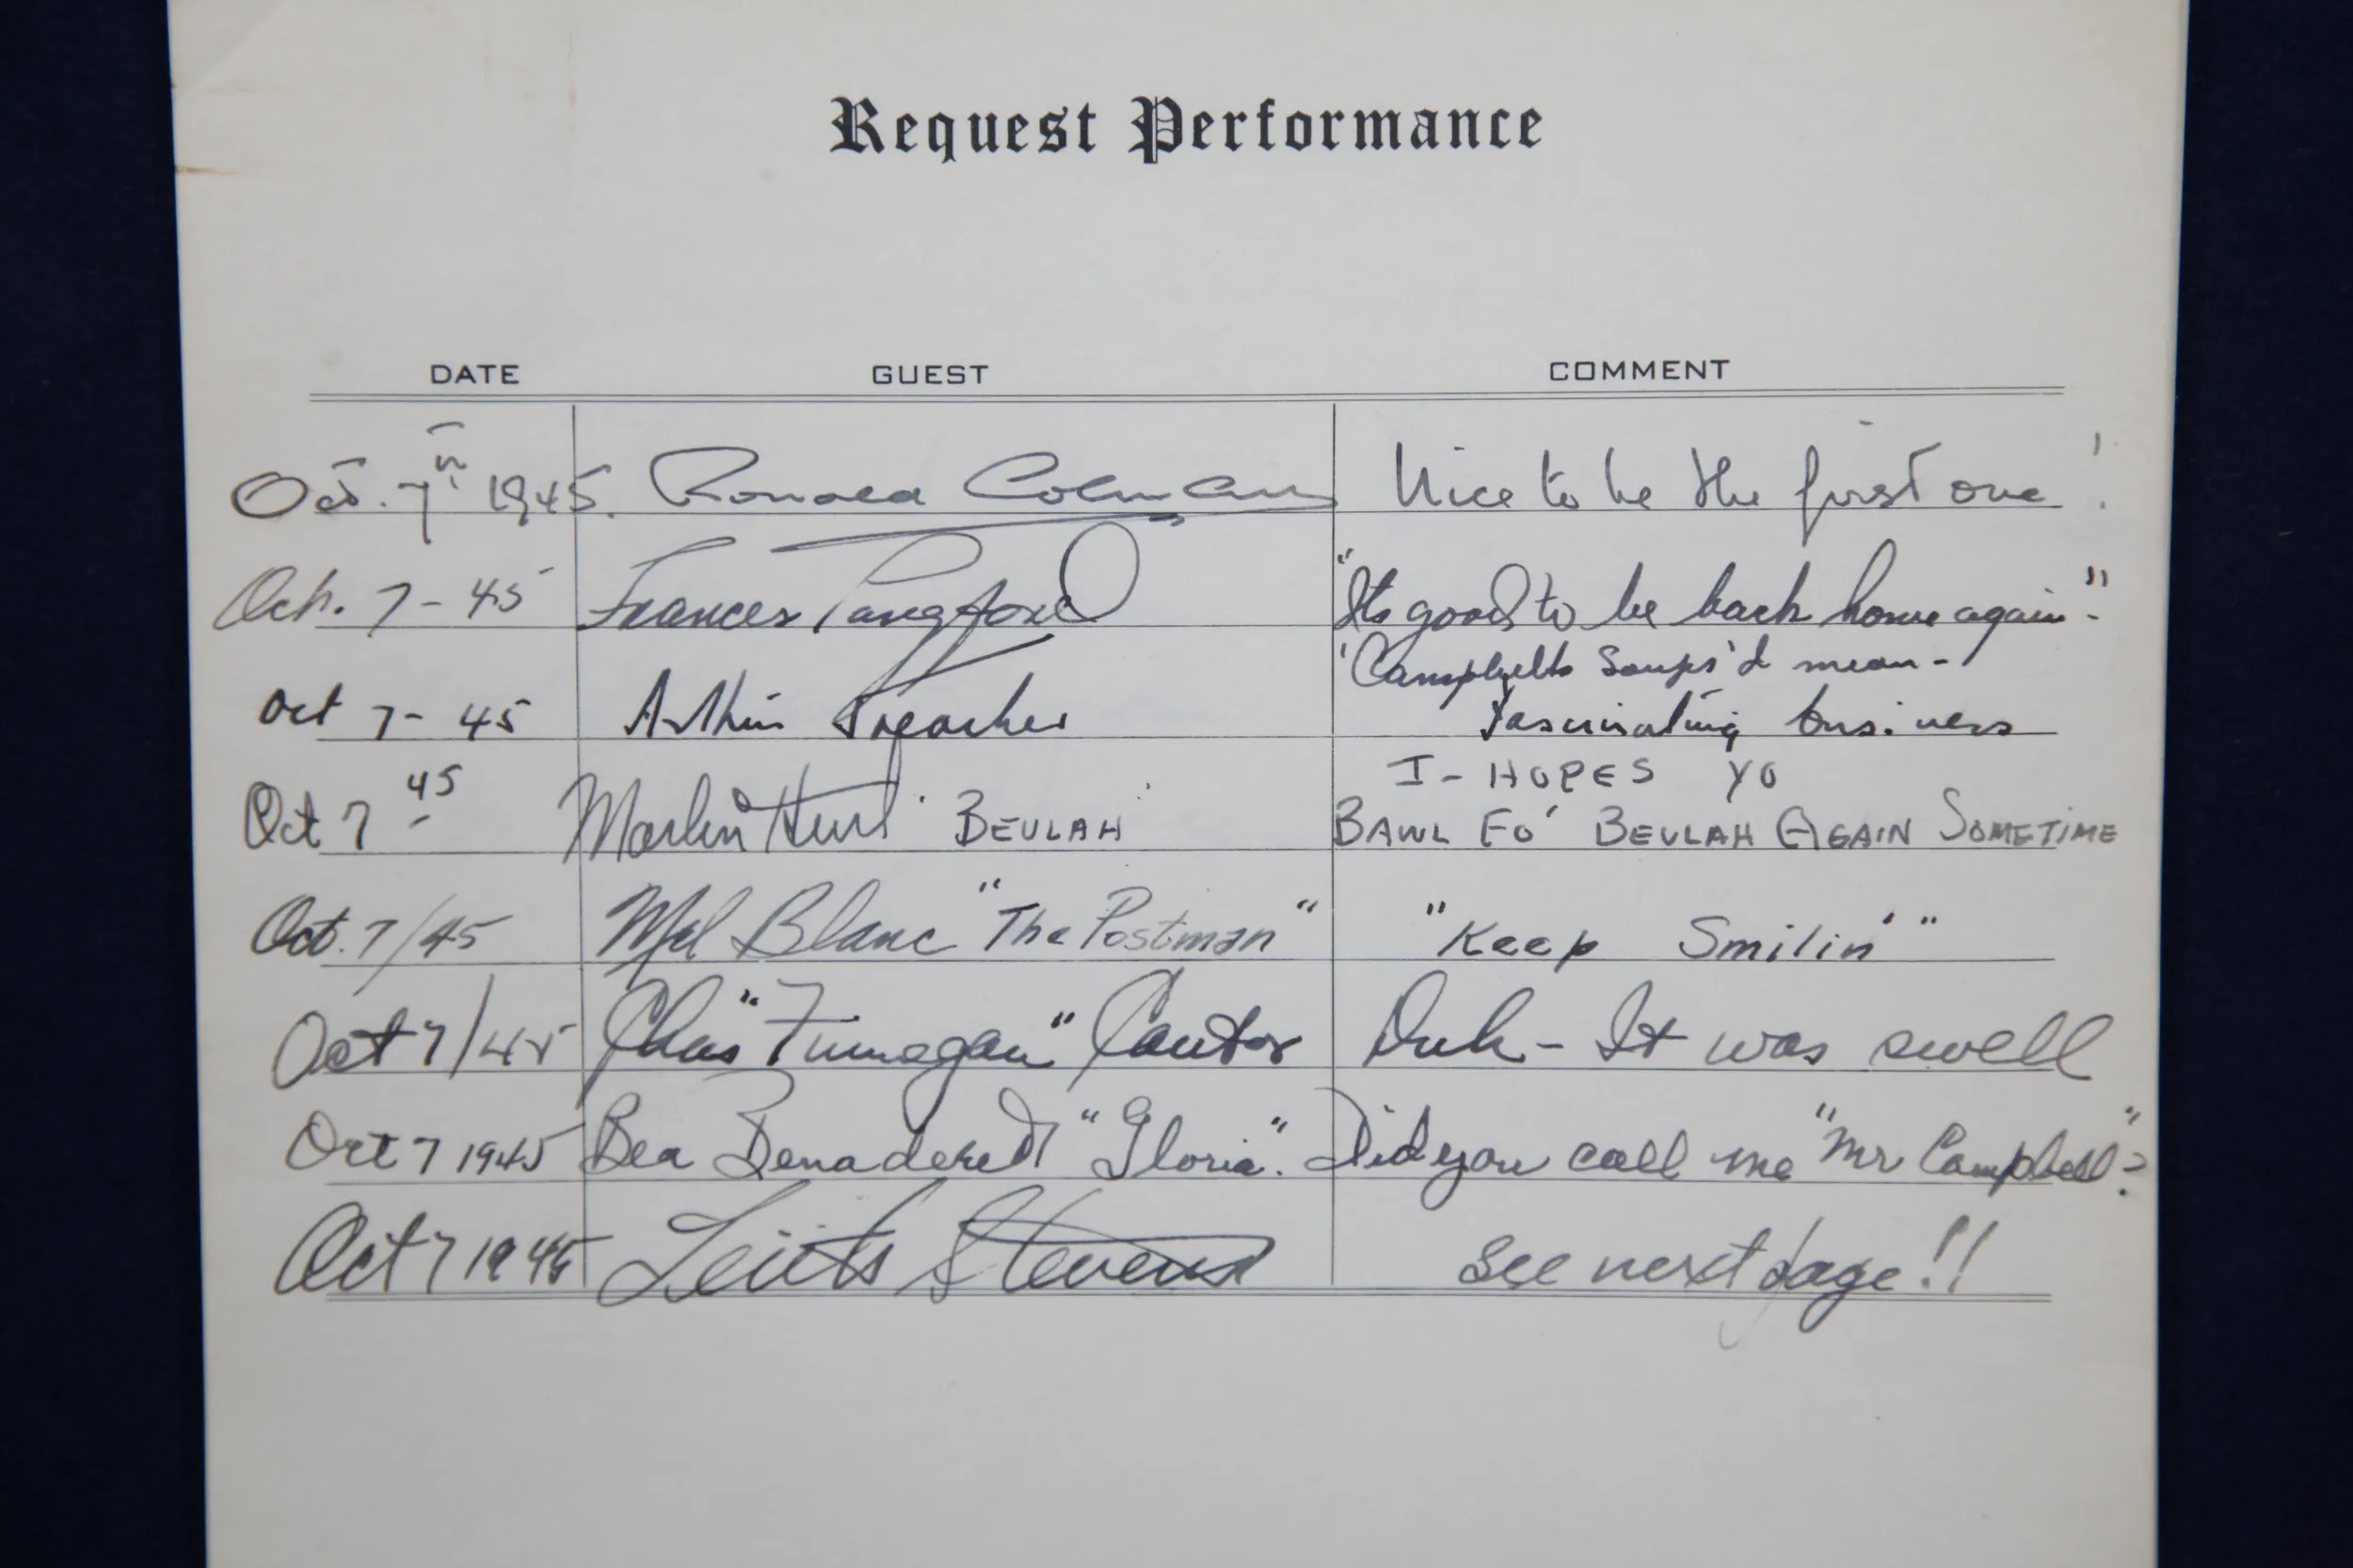 Request Performance
DATE GUEST COMMENT
Oct. 7th 1945. Ronald Colman Nice to be the first one !
Oct. 7 - 45 Frances Langford "Its good to be back home again".
'Campbells Soups' I mean -
Oct 7 - 45 Arthur Treacher fascinating business
I - HOPES YO
Oct 7 - 45 Marlin Hurt 'BEULAH' BAWL FO' BEULAH AGAIN SOMETIME
Oct. 7/45 Mel Blanc "The Postman" "Keep Smilin'"
Oct 7/45 Chas "Finnegan" Cantor Duh - It was swell
Oct 7 1945 Bea Benaderet "Gloria". Did you call me "Mr Campbell"?
Oct 7 1945 Leith Stevens See next page!!